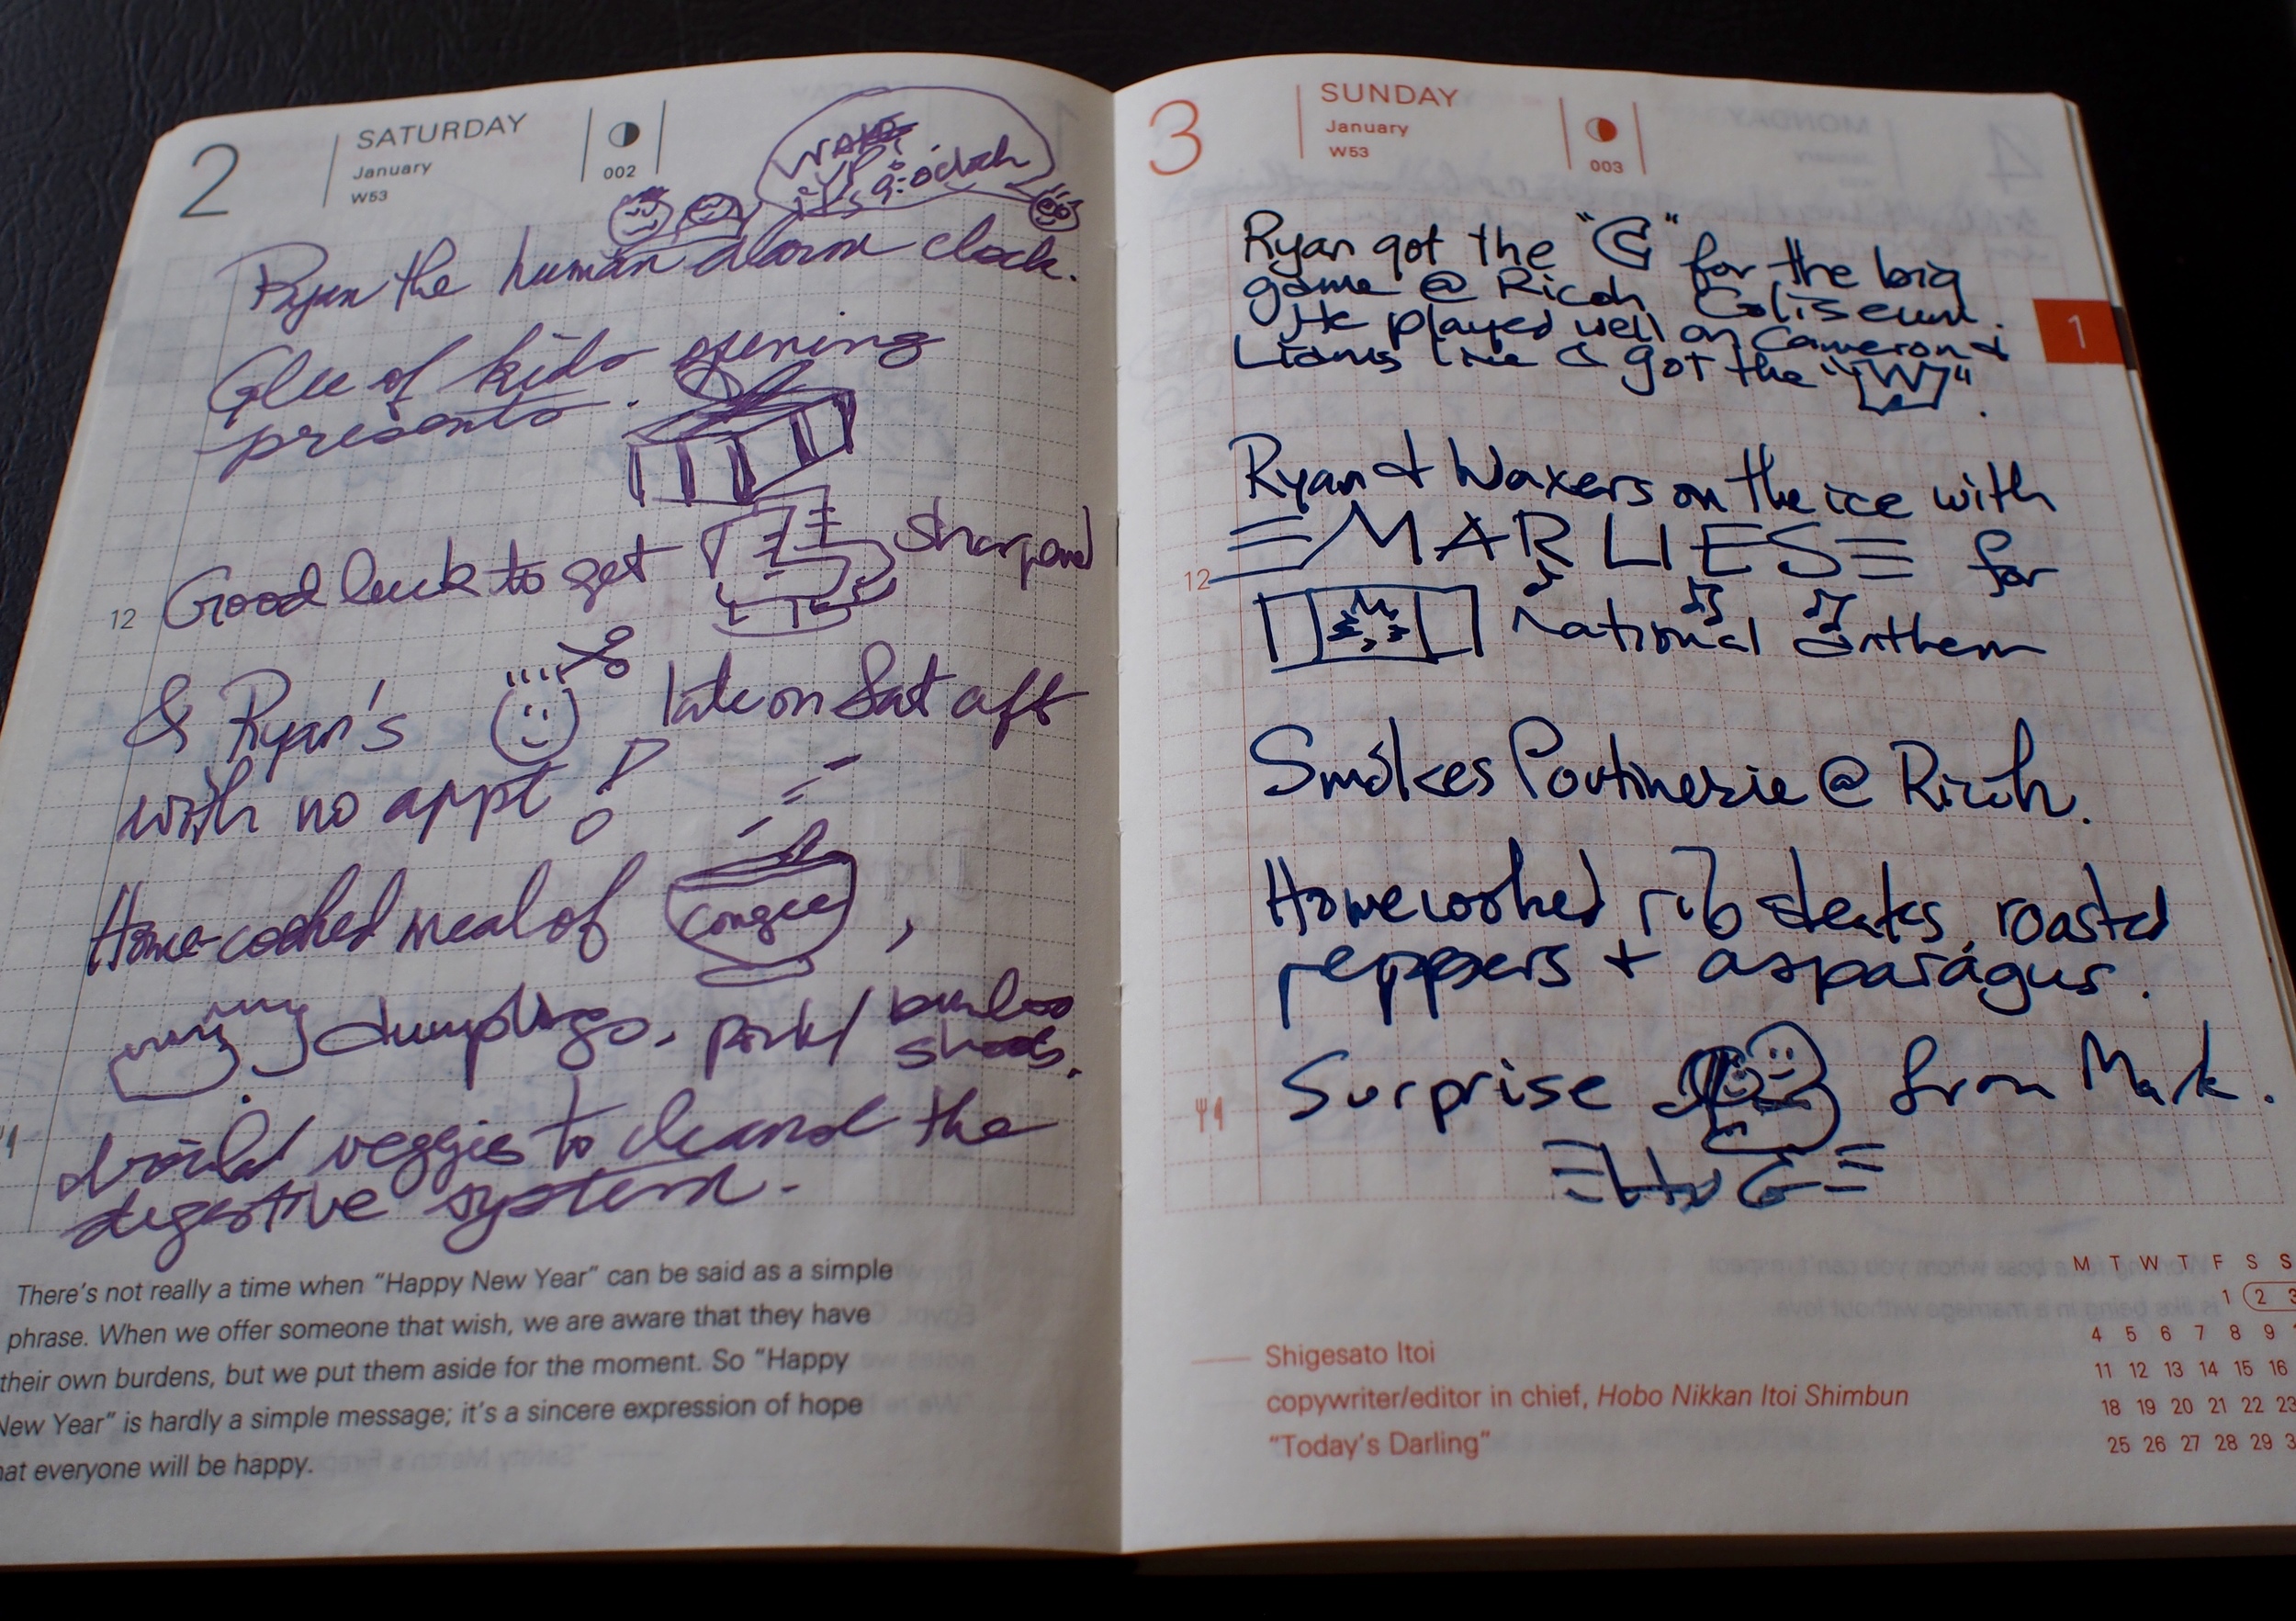 2
SATURDAY
January
W53
002
WAKE
UP!
it's 9:o'clock
Ryan the human alarm clock.
Glee of kids opening
presents.
Good luck to get sharpened
12
& Ryan's late on Sat aft
with no appt!
Home-cooked meal of congee,
dumplings, pork/ bamboo
shoots.
veggies to cleanse the
digestive system.
There's not really a time when "Happy New Year" can be said as a simple
phrase. When we offer someone that wish, we are aware that they have
their own burdens, but we put them aside for the moment. So "Happy
New Year" is hardly a simple message; it's a sincere expression of hope
that everyone will be happy.
3
SUNDAY
January
W53
003
1
Ryan got the "C" for the big
game @ Ricoh Coliseum.
He played well on Cameron &
Liam's line & got the "W".
Ryan & Waxers on the ice with
MARLIES for
12
national anthem
Smokes Poutinerie @ Ricoh.
Homecooked rib steaks, roasted
peppers + asparagus.
Surprise from Mark.
HUG
Shigesato Itoi
copywriter/editor in chief, Hobo Nikkan Itoi Shimbun
"Today's Darling"
M T W T F S S
1 2 3
4 5 6 7 8 9
11 12 13 14 15 16
18 19 20 21 22 23
25 26 27 28 29